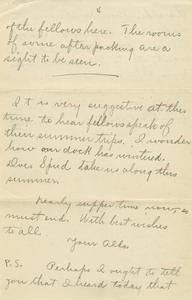 of the fellows here. The rooms
of some after packing are a
sight to be seen.
It is very suggestive at this
time to hear fellows speak of
their summer trips. I wonder
how our dock has wintered.
Does Spud take us along this
summer.
Nearly supper time now, so
must end. With best wishes
to all.
Your
P.S. Perhaps I ought to tell
you that I heard today that